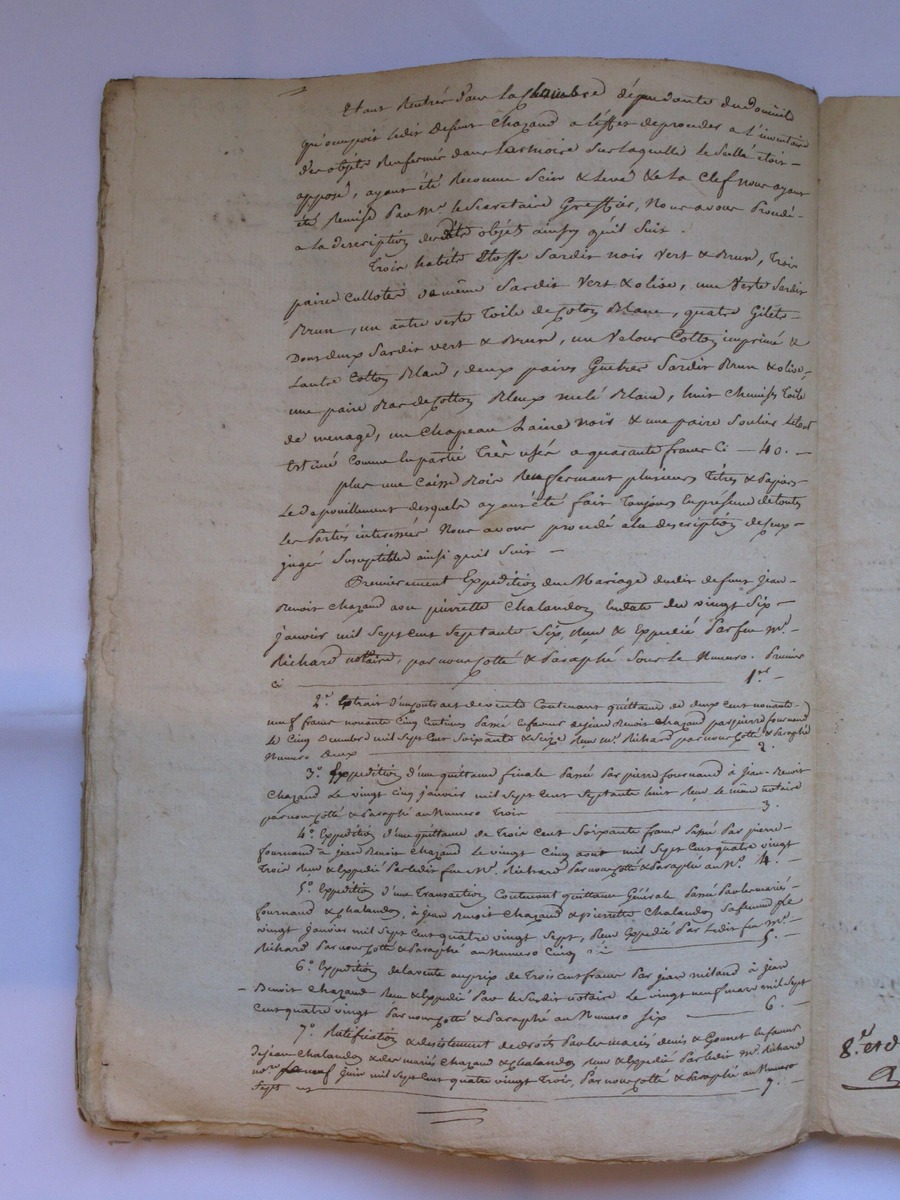 Etant Rentrés dans la Chambre dépendante du Domicile
qu'occupoit ledit Defunt Chazaud a l'effet de proceder a l'inventaire
des objets Renfermés dans l'armoire Sur laquelle le Scellé étoit
apposé, ayant été Reconnu Sain & levé & la Clef nous ayant
été Remise Par Mr. le Secretaire Greffier, Nous avons Procédé
a la description desdits objets ainsy qu'il Suit.
Trois habits Etoffe Sardis noir Vert & Brun, trois
paire Cullotes de même Sardis Vert & olive, une Veste Sardis
Brun, un autre veste Toile de Coton Blanc, quatre Gilets
Dont deux Sardis vert & Brun, un Velour Cotton imprimé &
Lautre Cotton Blanc, deux paires Guetres Sardis Brun & olive,
une paire Bas de Cotton Bleux melé Blanc, huit Chemises Toile
de menage, un Chapeau Laine noir & une paire Soulier Letout
Estimé Comme en partie Très usés a quarante francs Ci — 40. —
plus une Caisse Bois Renfermant plusieurs Titres & Papiers
Le depouillement desquels ayant été fait Toujours En présence de toutes
Les Parties interessées Nous avons procedé a la description de Ceux
jugés Susceptibles ainsi quil Suit —
Premierement Expedition du Mariage dudit defunt Jean-
Benoit Chazaud avec pierrette Chalandon En date du vingt Six
janvier mil Sept Cent Septante Six, Recu & Expedié Par feu Mr.
Richard notaire, par nous Cotté & Paraphé Sous le Numero. Premier
Ci — 1er —
2° Extrait d'un Contract de vente Contenant quittance de deux Cent nonante
neuf francs nonante Cinq Centimes Passé En faveur de jean Benoit Chazaud par pierre fournand
Le Cinq Decembre mil Sept Cent Soixante & Seize Recu Mr. Richard par nous Cotté & Paraphé
Numero Deux — 2. —
3° Expedition d'une quittance finale Passé Par pierre fournand à Jean-Benoit
Chazaud Le vingt Cinq janvier mil Sept Cent Septante huit Recu Le même notaire
par nous Cotté & Paraphé au Numero Trois — 3. —
4° Expedition d'une quittance de Trois Cent Soixante francs Passé Par pierre
fournand à jean Benoit Chazaud Le vingt Cinq aout mil Sept Cent quatre vingt
Trois Recu & Expedié Par ledit feu Mr. Richard Par nous Cotté & Paraphé au N°. 4. —
5° Expedition d'une Transaction Contenant quittance Générale Passé Par les mariés
fournand & Chalandon, à Jean Benoit Chazaud & pierrette Chalandon Sa femme Le
vingt Janvier mil Sept Cent quatre vingt Sept, Recu Expedié Par Ledit feu Mr.
Richard Par nous Cotté & Paraphé au Numero Cinq Ci — 5. —
6° Expedition de la vente au prix de Trois Cent francs Par jean miland à jean
Benoit Chazaud Recu & Expedié Par le Susdit notaire Le vingt neuf mars mil Sept
Cent quatre vingt Par nous Cotté & Paraphé au Numero Six — 6. —
7° Ratification & desistement de droits Par les mariés denis & Gonnet En faveur
de jean Chalandon & des mariés Chazaud & Chalandon Recu & Expedié Par ledit Mr. Richard
nore. Juin mil Sept Cent quatre vingt Trois, Par nous Cotté & Paraphé au Numero
Sept — 7. —
8° et d